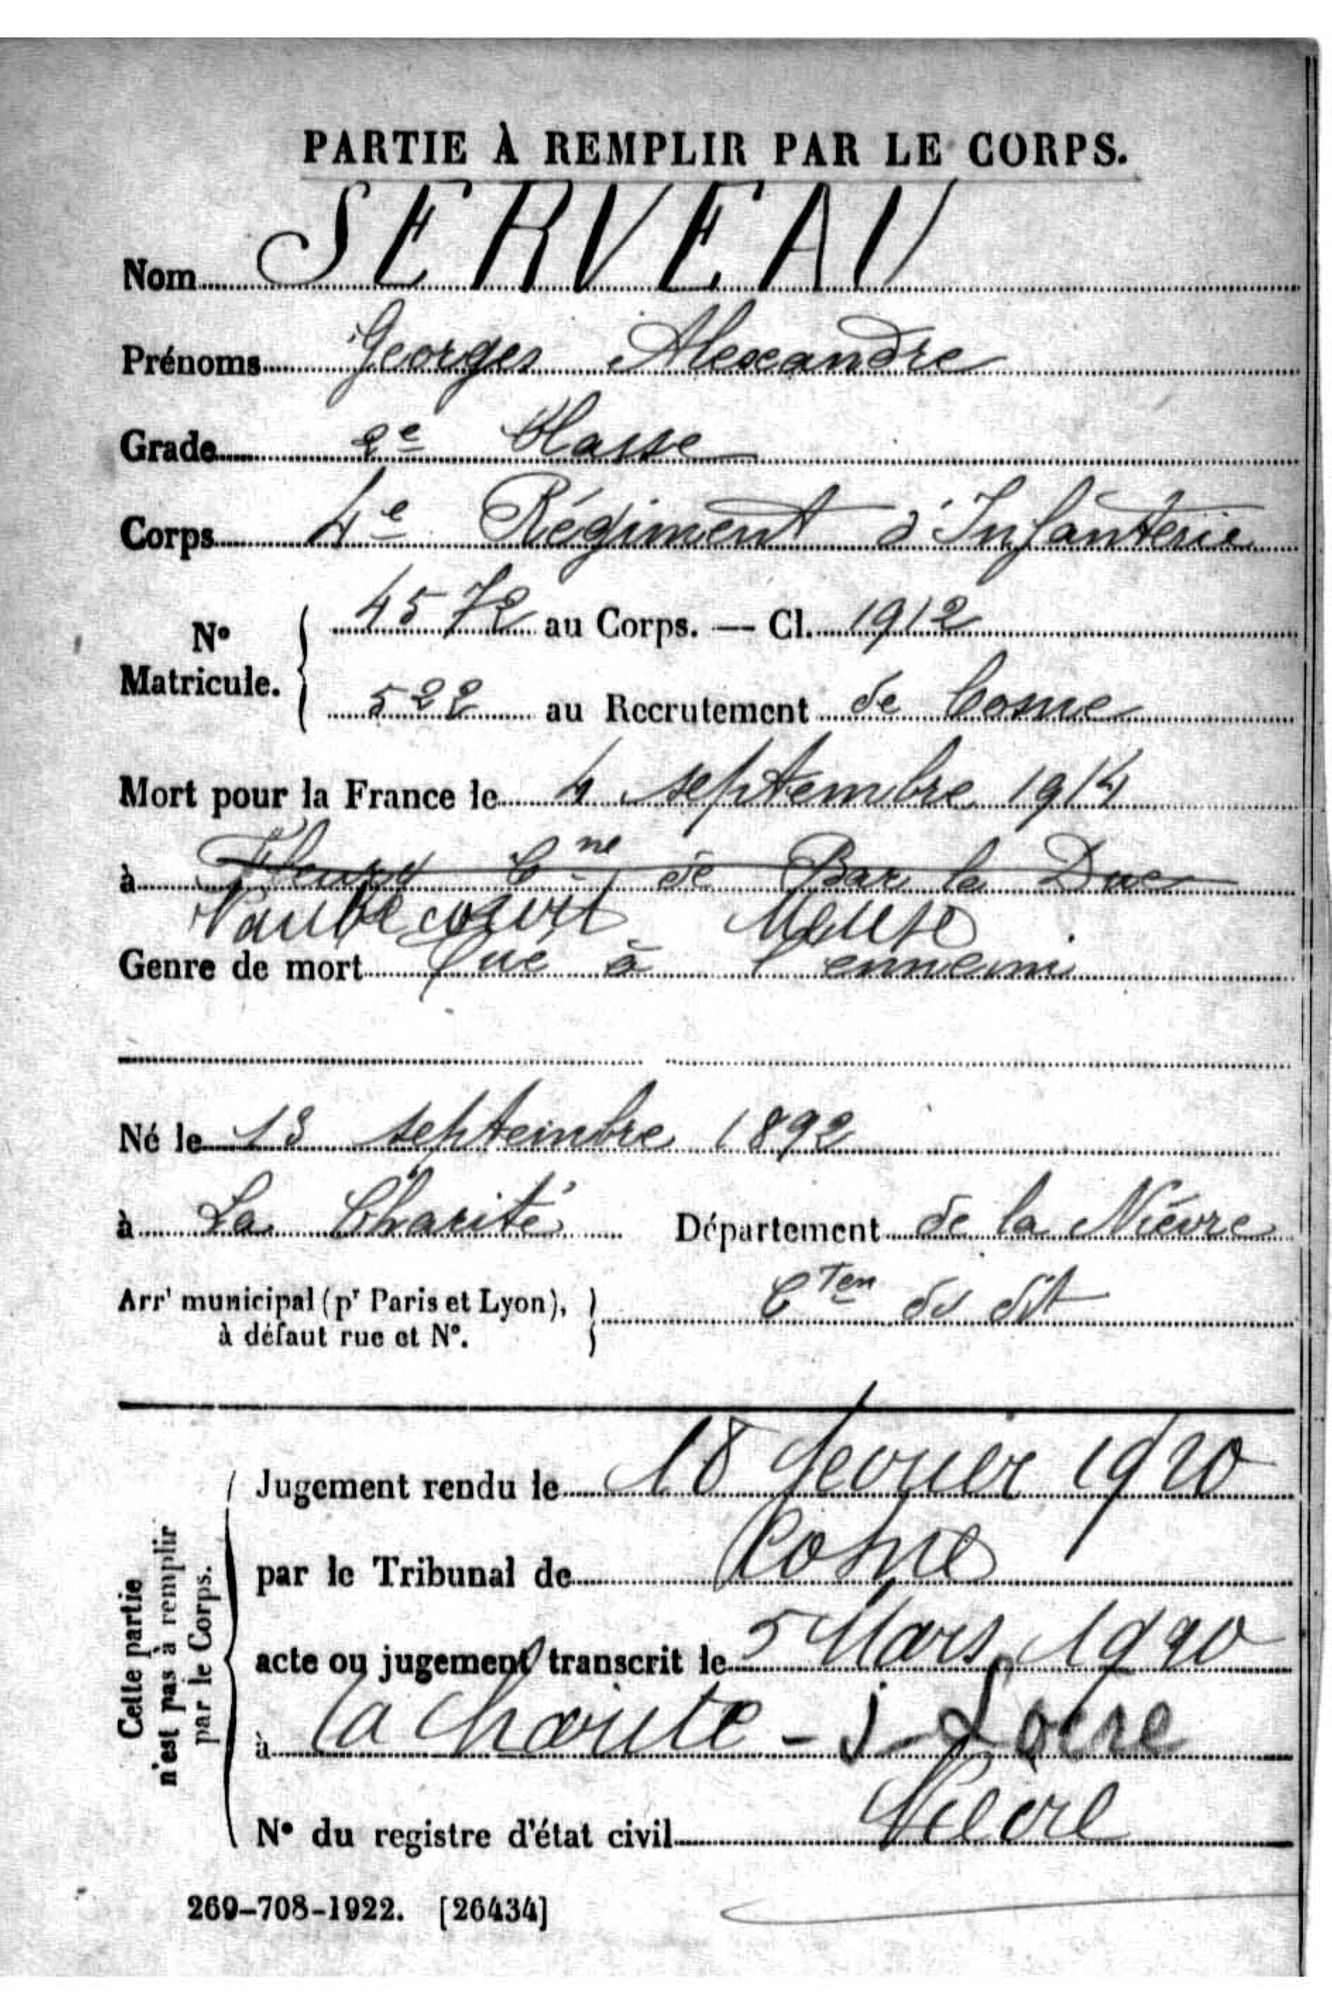 PARTIE À REMPLIR PAR LE CORPS.
Nom SERVEAU
Prénoms Georges Alexandre
Grade 2e Classe
Corps 4e Régiment d'Infanterie
No Matricule. 4572 au Corps. — Cl. 1912
522 au Recrutement de Cosne
Mort pour la France le 4 septembre 1914
à Fleury Cne de Bar le Duc
Vaubecourt Meuse
Genre de mort Tué à l'ennemi
Né le 13 septembre 1892
à La Charité Département de la Nièvre
Arrt municipal (pr Paris et Lyon), Cton du dit
à défaut rue et No.
Cette partie n'est pas à remplir par le Corps.
Jugement rendu le 18 fevrier 1920
par le Tribunal de Cosne
acte ou jugement transcrit le 5 Mars 1920
à la Charité - s Loire
Nièvre
No du registre d'état civil
269-708-1922. [26434]